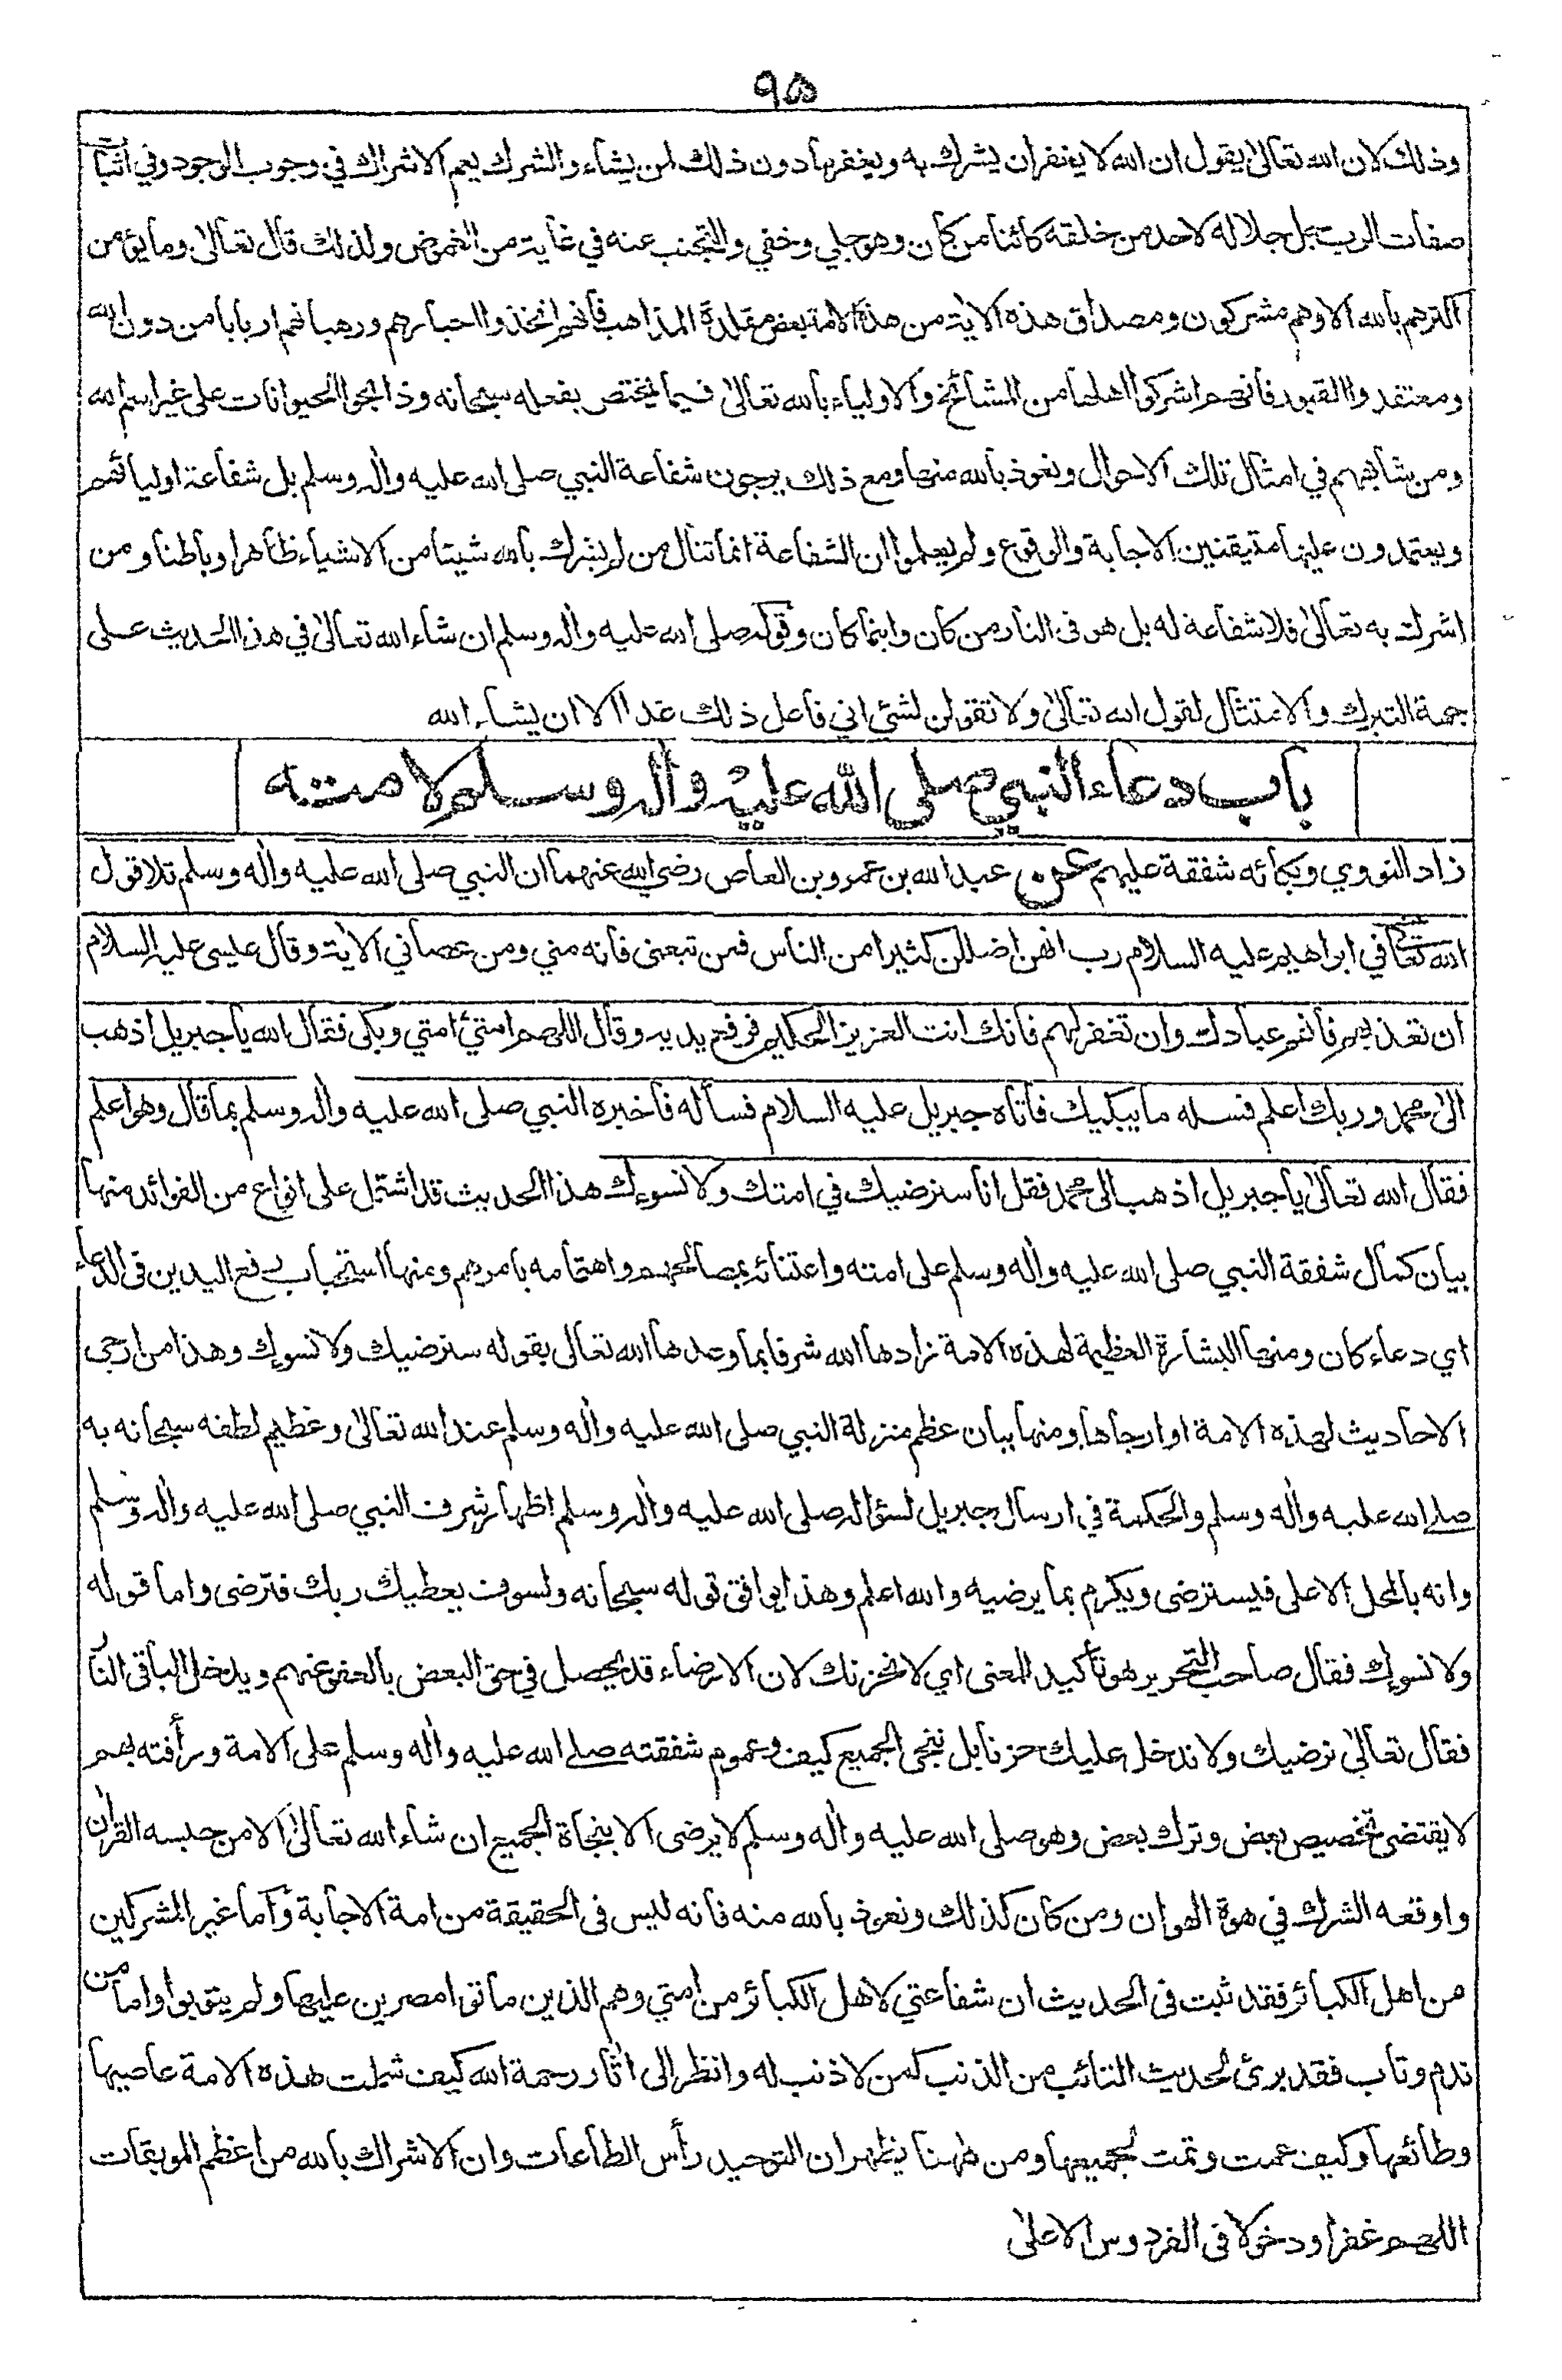 ٩٥
وذلك لان الله تعالىٰ يقول ان الله لا يغفر ان يشرك به ويغفر ما دون ذلك لمن يشاء والشرك يعم الاشراك في وجوب الوجود وفي اثبات
صفات الرب جل جلاله لاحد من خلقه كائنا من كان وهو جلي وخفي والتجنب عنه في غاية من الغموض ولذلك قال تعالىٰ وما يؤمن
اكثرهم بالله الا وهم مشركون ومصداق هذه الاية من هذه الامة بعض مقلدة المذاهب فانهم اتخذوا احبارهم ورهبانهم اربابا من دون الله
ومعتقدوا القبور فانهم اشركوا اهلها من المشائخ والاولياء بالله تعالىٰ فيما يختص بفعله سبحانه وذابحوا الحيوانات على غير اسم الله
ومن شابههم في امثال تلك الاحوال ونعوذ بالله منها ومع ذلك يرجون شفاعة النبي صلى الله عليه واٰله وسلم بل شفاعة اوليائهم
ويعتمدون عليها متيقنين الاجابة والوقوع ولم يعلموا ان الشفاعة انما تنال من لم يشرك بالله شيئا من الاشياء ظاهرا وباطنا ومن
اشرك به تعالىٰ فلا شفاعة له بل هو في النار من كان واينما كان وقوله صلى الله عليه واٰله وسلم ان شاء الله تعالىٰ في هذا الحديث على
جهة التبرك والامتثال لقول الله تعالىٰ ولا تقولن لشئ اني فاعل ذلك غدا الا ان يشاء الله
باب دعاء النبي صلى الله عليه واٰله وسلم لامته
زاد النووي وبكائه شفقة عليهم عن عبد الله بن عمرو بن العاص رضي الله عنهما ان النبي صلى الله عليه واٰله وسلم تلا قول
الله تعالى في ابراهيم عليه السلام رب انهن اضللن كثيرا من الناس فمن تبعني فانه مني ومن عصاني الاٰية وقال عيسى عليه السلام
ان تعذبهم فانهم عبادك وان تغفر لهم فانك انت العزيز الحكيم فرفع يديه وقال اللهم امتي امتي وبكى فقال الله يا جبريل اذهب
الىٰ محمد وربك اعلم فسله ما يبكيك فاتاه جبريل عليه السلام فسأله فاخبره النبي صلى الله عليه واٰله وسلم بما قال وهو اعلم
فقال الله تعالىٰ يا جبريل اذهب الى محمد فقل انا سنرضيك في امتك ولا نسوءك هذا الحديث قد اشتمل على انواع من الفوائد منها
بيان كمال شفقة النبي صلى الله عليه واٰله وسلم على امته واعتنائه بمصالحهم واهتمامه بامرهم ومنها استحباب رفع اليدين في الدعاء
اي دعاء كان ومنها البشارة العظيمة لهذه الامة زادها الله شرفا بما وعدها الله تعالى بقوله سنرضيك ولا نسوك وهذا من ارجى
الاحاديث لهذه الامة او ارجاها ومنها بيان عظم منزلة النبي صلى الله عليه واٰله وسلم عند الله تعالىٰ وعظيم لطفه سبحانه به
صلى الله عليه واٰله وسلم والحكمة في ارسال جبريل لسؤاله صلى الله عليه واٰله وسلم اظهار شرف النبي صلى الله عليه واٰله وسلم
وانه بالمحل الاعلى فيسترضى ويكرم بما يرضيه والله اعلم وهذا يوافق قوله سبحانه ولسوف يعطيك ربك فترضى واما قوله
ولا نسوك فقال صاحب التحرير هو تأكيد للمعنى اي لا نحزنك لان الارضاء قد يحصل في حق البعض بالعفو عنهم ويدخل الباقي النار
فقال تعالىٰ نرضيك ولا ندخل عليك حزنا بل ننجي الجميع كيف وعموم شفقته صلى الله عليه واٰله وسلم على الامة ورأفته بهم
لا يقتضي تخصيص بعض وترك بعض وهو صلى الله عليه واٰله وسلم لا يرضى الا بنجاة الجميع ان شاء الله تعالىٰ الا من حبسه القراٰن
واوقعه الشرك في هوة الهوان ومن كان كذلك ونعوذ بالله منه فانه ليس في الحقيقة من امة الاجابة واما غير المشركين
من اهل الكبائر فقد ثبت في الحديث ان شفاعتي لاهل الكبائر من امتي وهم الذين ماتوا مصرين عليها ولم يتوبوا واما من
ندم وتاب فقد برئ لحديث التائب من الذنب كمن لا ذنب له وانظر الى اٰثار رحمة الله كيف شملت هذه الامة عاصيها
وطائعها وكيف عمت وتمت لجميعها ومن ههنا يظهر ان التوحيد رأس الطاعات وان الاشراك بالله من اعظم الموبقات
اللهم غفرا ودخولا في الفردوس الاعلىٰ